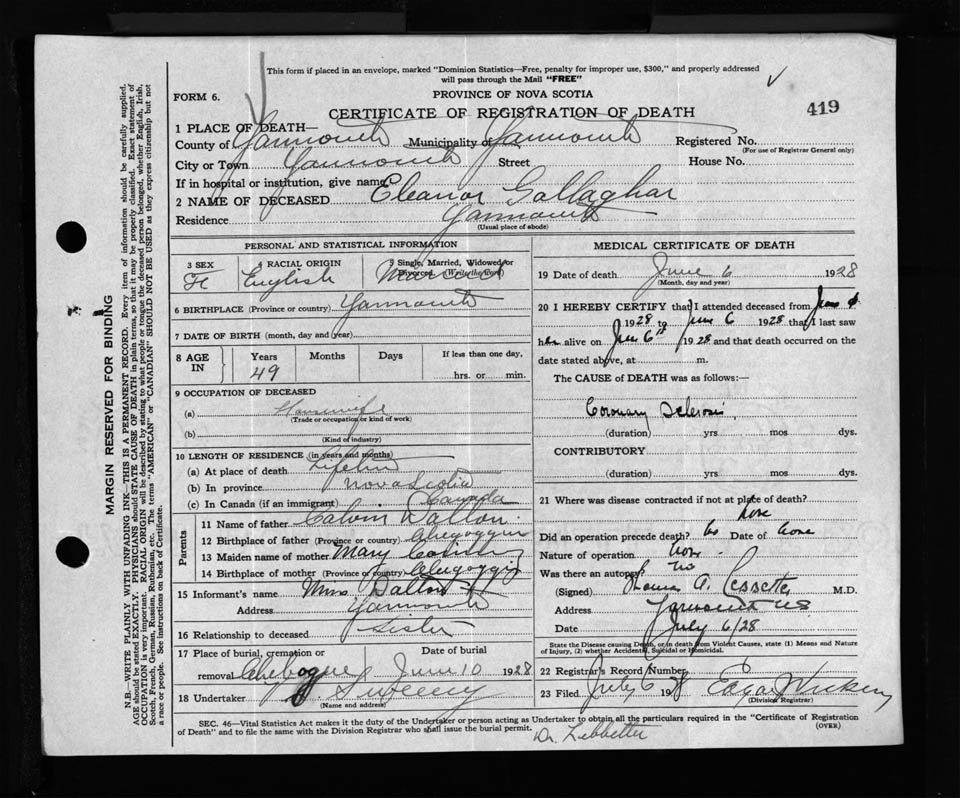 This form if placed in an envelope, marked "Dominion Statistics—Free, penalty for improper use, $300," and properly addressed
will pass through the Mail "FREE"
FORM 6.
PROVINCE OF NOVA SCOTIA
419
CERTIFICATE OF REGISTRATION OF DEATH
1 PLACE OF DEATH—
County of Yarmouth Municipality of Yarmouth Registered No.
(For use of Registrar General only)
City or Town Yarmouth Street House No.
If in hospital or institution, give name
2 NAME OF DECEASED Eleanor Gallaghar
Residence Yarmouth
(Usual place of abode)
PERSONAL AND STATISTICAL INFORMATION
3 SEX 4 RACIAL ORIGIN 5 Single, Married, Widowed or Divorced (Write the word)
F English Married
6 BIRTHPLACE (Province or country) Yarmouth
7 DATE OF BIRTH (month, day and year)
8 AGE IN Years Months Days If less than one day,
49 hrs. or min.
9 OCCUPATION OF DECEASED
(a) Housewife
(Trade or occupation or kind of work)
(b)
(Kind of industry)
10 LENGTH OF RESIDENCE (in years and months)
(a) At place of death Lifetime
(b) In province Nova Scotia
(c) In Canada (if an immigrant) Canada
Parents
11 Name of father Calvin Dalton
12 Birthplace of father (Province or country) Chegoggin
13 Maiden name of mother Mary
14 Birthplace of mother (Province or country) Chegoggin
15 Informant's name Mrs Dalton
Address Yarmouth
16 Relationship to deceased Sister
17 Place of burial, cremation or removal Date of burial
Chebogue June 10 1928
18 Undertaker Sweeny
(Name and address)
MEDICAL CERTIFICATE OF DEATH
19 Date of death June 6 1928
(Month, day and year)
20 I HEREBY CERTIFY that I attended deceased from June
1928 to June 6 1928 that I last saw
her alive on June 6th 1928 and that death occurred on the
date stated above, at m.
The CAUSE of DEATH was as follows:—
Coronary Sclerosis
(duration) yrs mos dys.
CONTRIBUTORY
(duration) yrs. mos dys.
21 Where was disease contracted if not at place of death?
Did an operation precede death? no Date of none
Nature of operation none
Was there an autopsy no
(Signed) A. M.D.
Address Yarmouth NS
Date July 6/28
State the Disease causing Death, or in death from Violent Causes, state (1) Means and Nature
of Injury, (2) whether Accidental, Suicidal or Homicidal.
22 Registrar's Record Number
23 Filed July 6 1928
(Division Registrar)
SEC. 46—Vital Statistics Act makes it the duty of the Undertaker or person acting as Undertaker to obtain all the particulars required in the "Certificate of Registration
of Death" and to file the same with the Division Registrar who shall issue the burial permit.
(OVER)
Dr.
MARGIN RESERVED FOR BINDING
N.B.—WRITE PLAINLY WITH UNFADING INK—THIS IS A PERMANENT RECORD. Every item of information should be carefully supplied.
AGE should be stated EXACTLY. PHYSICIANS should STATE CAUSE OF DEATH in plain terms, so that it may be properly classified. Exact statement of
OCCUPATION is very important. RACIAL ORIGIN will be described by stating to what people or tongue the deceased person belonged, whether English, Irish,
Scotch, French, German, Russian, Ruthenian, etc. The terms "AMERICAN" or "CANADIAN" SHOULD NOT BE USED as they express citizenship but not
a race or people. See instructions on back of Certificate.